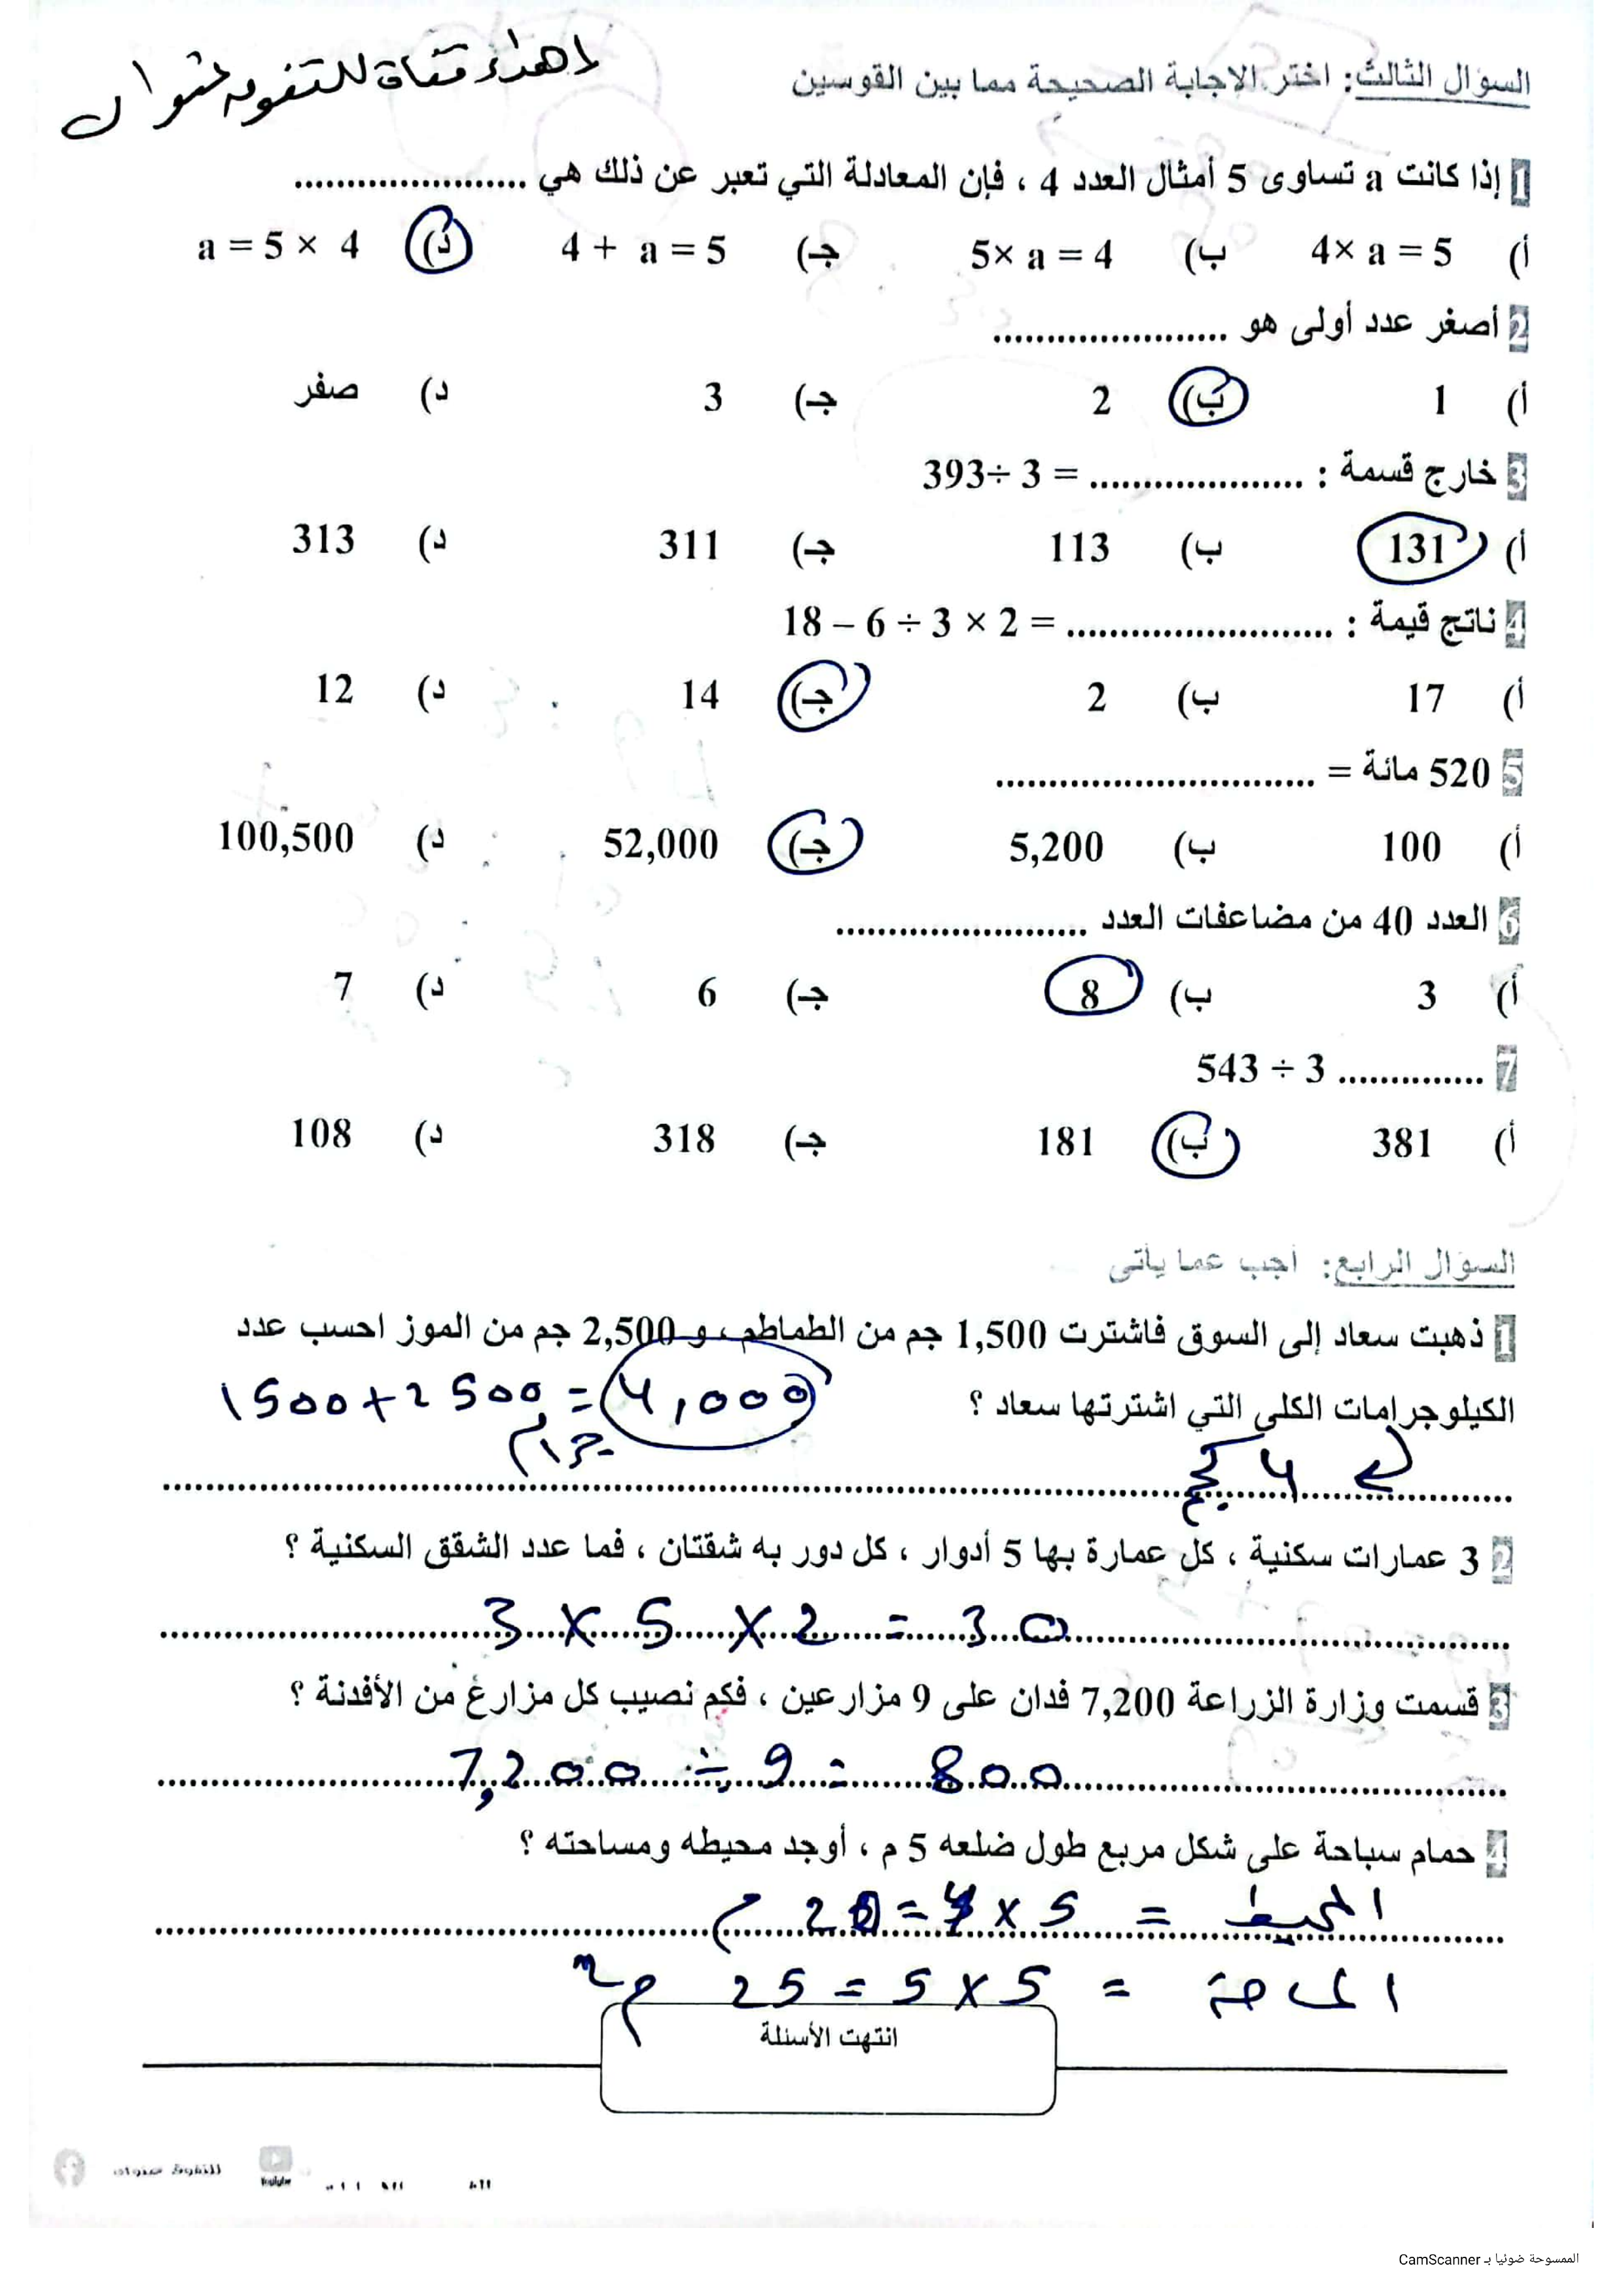 اهداء قناة للتفوق عنوان
السؤال الثالث: اختر الإجابة الصحيحة مما بين القوسين
1 إذا كانت a تساوى 5 أمثال العدد 4 ، فإن المعادلة التي تعبر عن ذلك هي ......................
أ) 4× a = 5 ب) 5× a = 4 جـ) 4 + a = 5 د) a = 5 × 4
2 أصغر عدد أولى هو ......................
أ) 1 ب) 2 جـ) 3 د) صفر
3 خارج قسمة : .................... = 393÷ 3
أ) 131 ب) 113 جـ) 311 د) 313
4 ناتج قيمة : ......................... = 18 – 6 ÷ 3 × 2
أ) 17 ب) 2 جـ) 14 د) 12
5 520 مائة = ..............................
أ) 100 ب) 5,200 جـ) 52,000 د) 100,500
6 العدد 40 من مضاعفات العدد ........................
أ) 3 ب) 8 جـ) 6 د) 7
7 .............. 543 ÷ 3
أ) 381 ب) 181 جـ) 318 د) 108
السؤال الرابع: أجب عما يأتى
1 ذهبت سعاد إلى السوق فاشترت 1,500 جم من الطماطم ، و 2,500 جم من الموز احسب عدد
الكيلوجرامات الكلى التي اشترتها سعاد ؟ 1500+2500 = 4,000
جرام
4 كجم
2 3 عمارات سكنية ، كل عمارة بها 5 أدوار ، كل دور به شقتان ، فما عدد الشقق السكنية ؟
3 × 5 × 2 = 30
3 قسمت وزارة الزراعة 7,200 فدان على 9 مزارعين ، فكم نصيب كل مزارع من الأفدنة ؟
7,200 ÷ 9 = 800
4 حمام سباحة على شكل مربع طول ضلعه 5 م ، أوجد محيطه ومساحته ؟
المحيط = 5 × 4 = 20 م
المساحة = 5 × 5 = 25 م²
انتهت الأسئلة
للتفوق عنوان
YouTube
الممسوحة ضوئيا بـ CamScanner